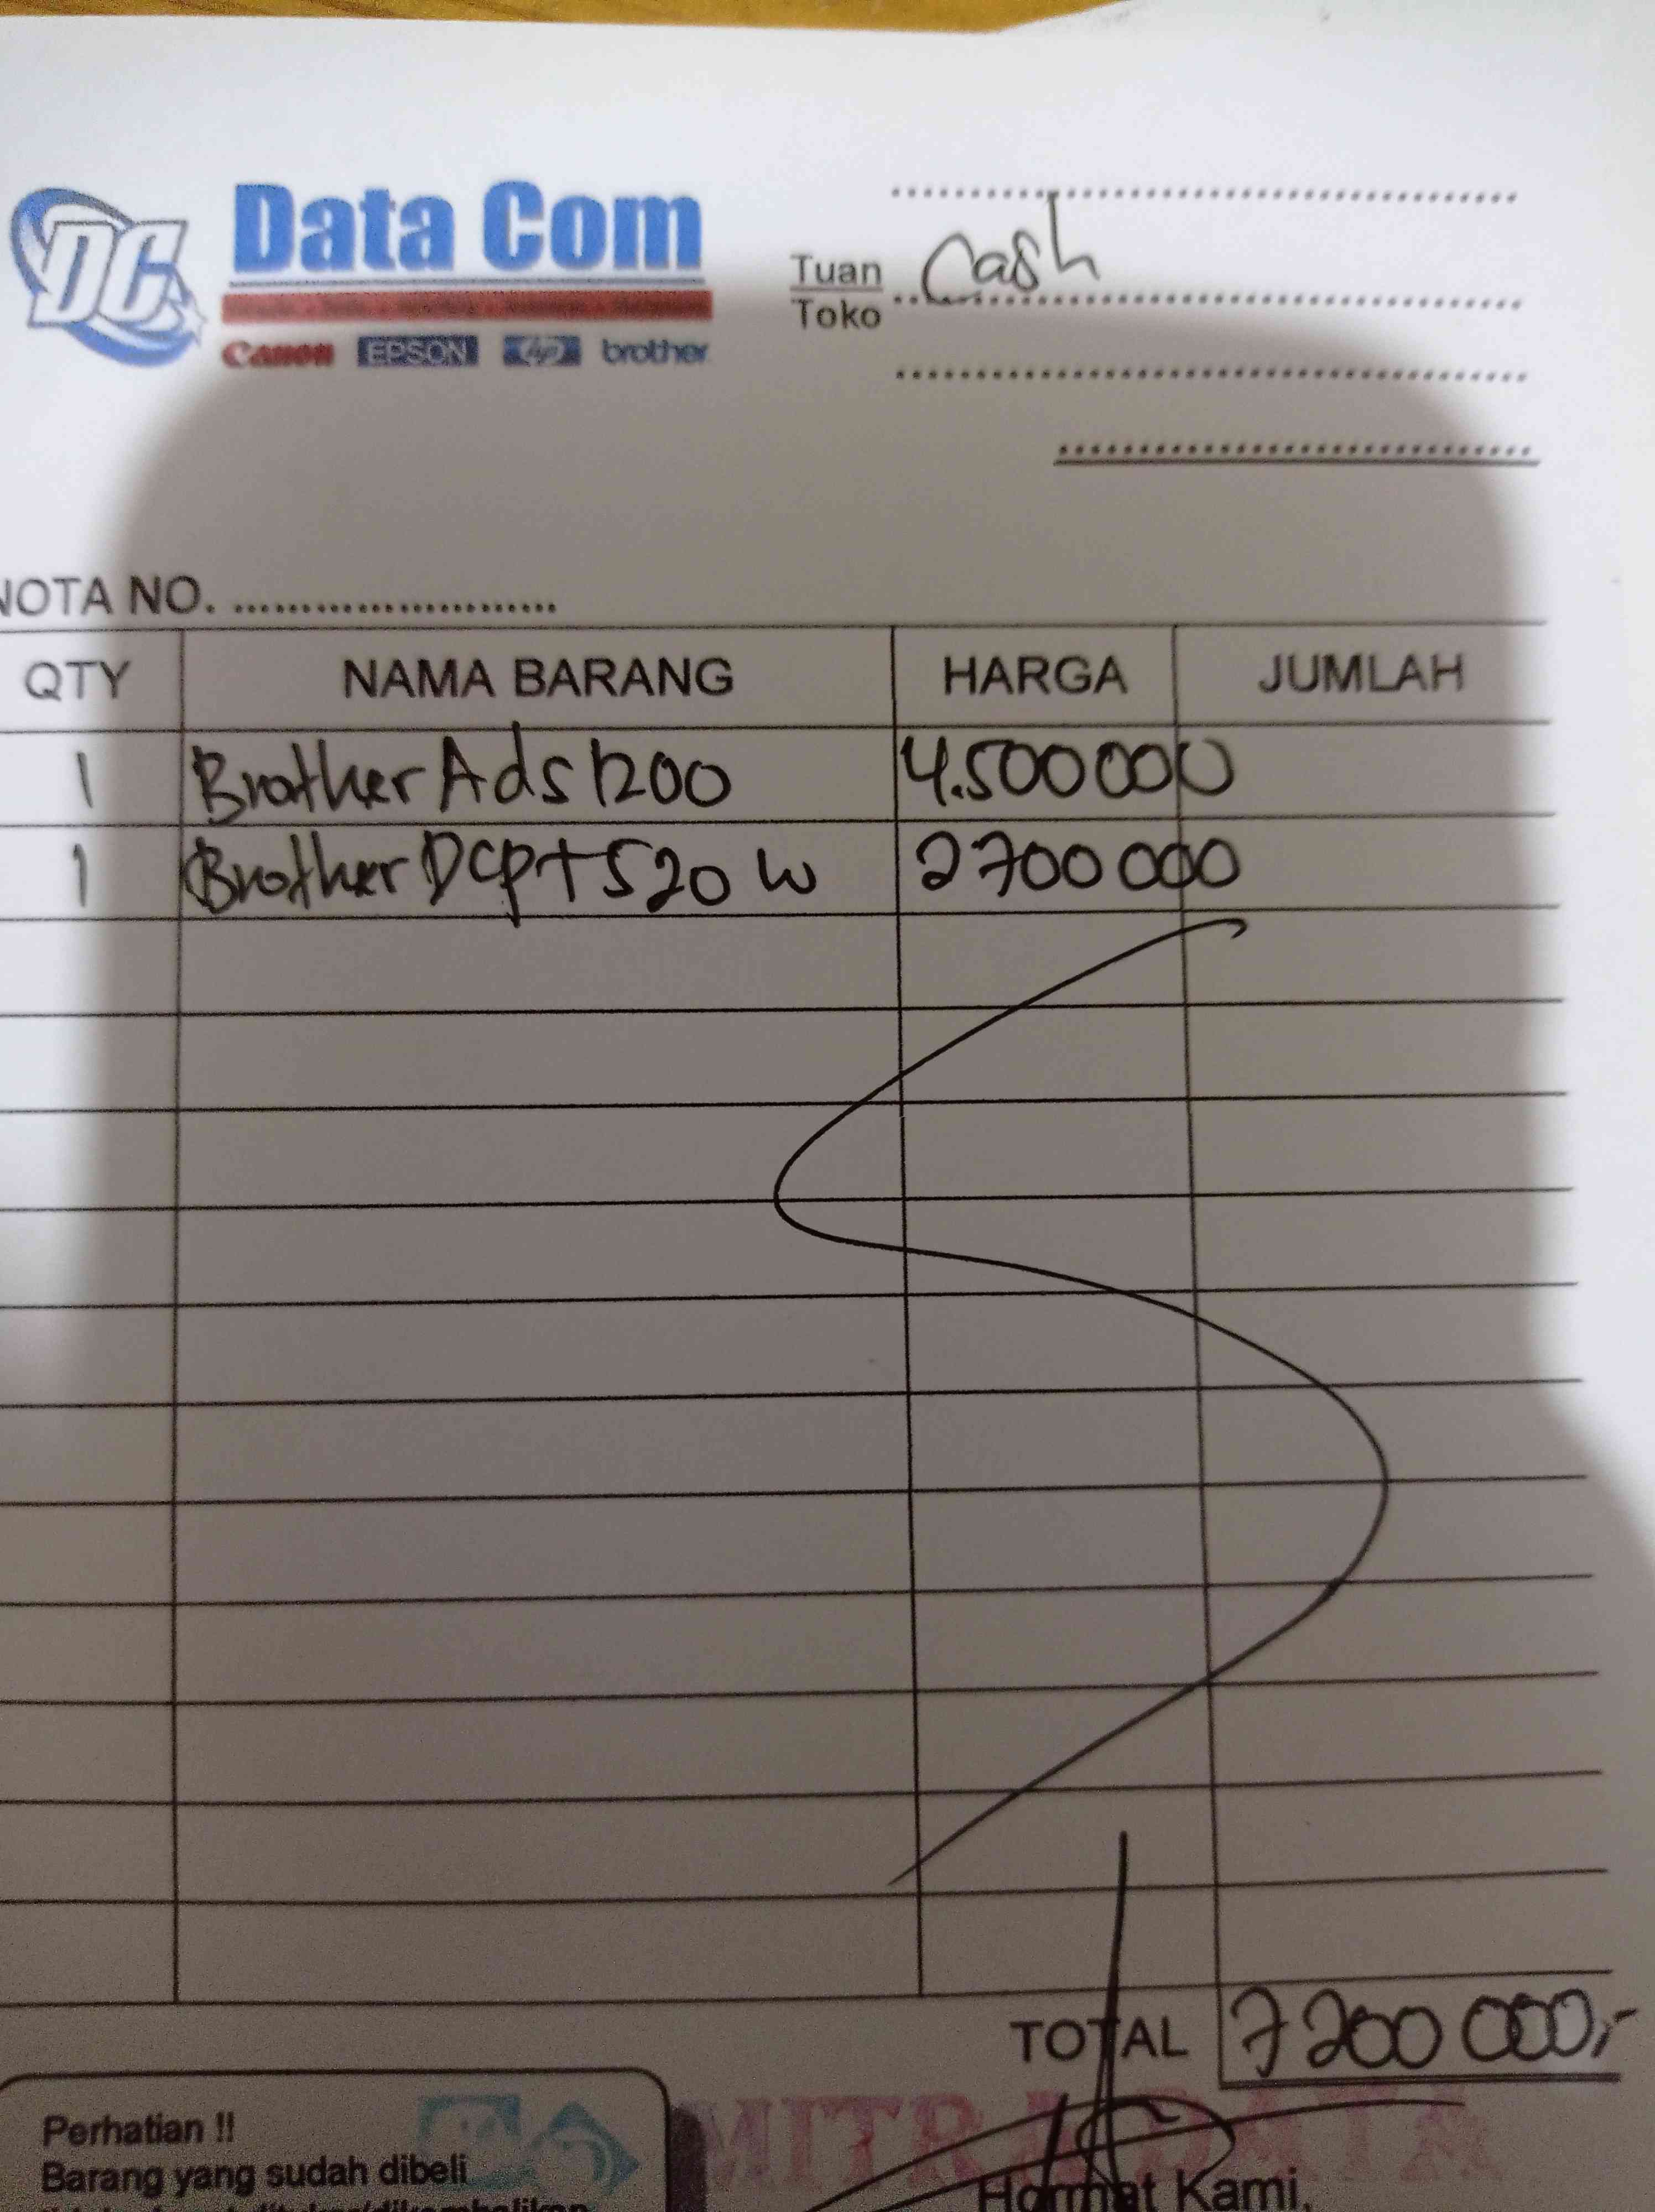 DC
Data Com
Canon EPSON hp brother
Tuan Cash
Toko
NOTA NO.
QTY NAMA BARANG HARGA JUMLAH
1 Brother Ads 1200 4.500 000
1 Brother Dcp T 520 w 2700 000
TOTAL 7200 000,-
Perhatian !!
Barang yang sudah dibeli
MITRA DATA
Hormat Kami,